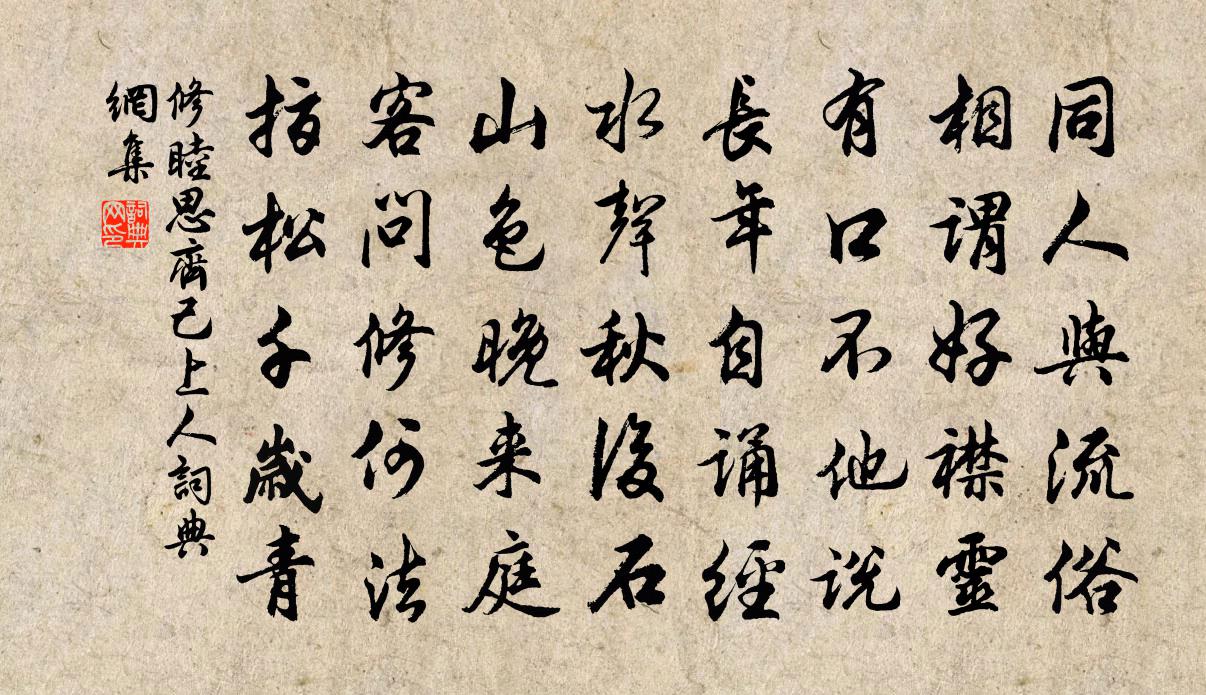 同人與流俗
相謂好襟靈
有口不他說
長年自誦經
水聲秋後石
山色晚来庭
客問修何法
指松千歲青
修睦思齊己上人詞典
網集
詞典
网印